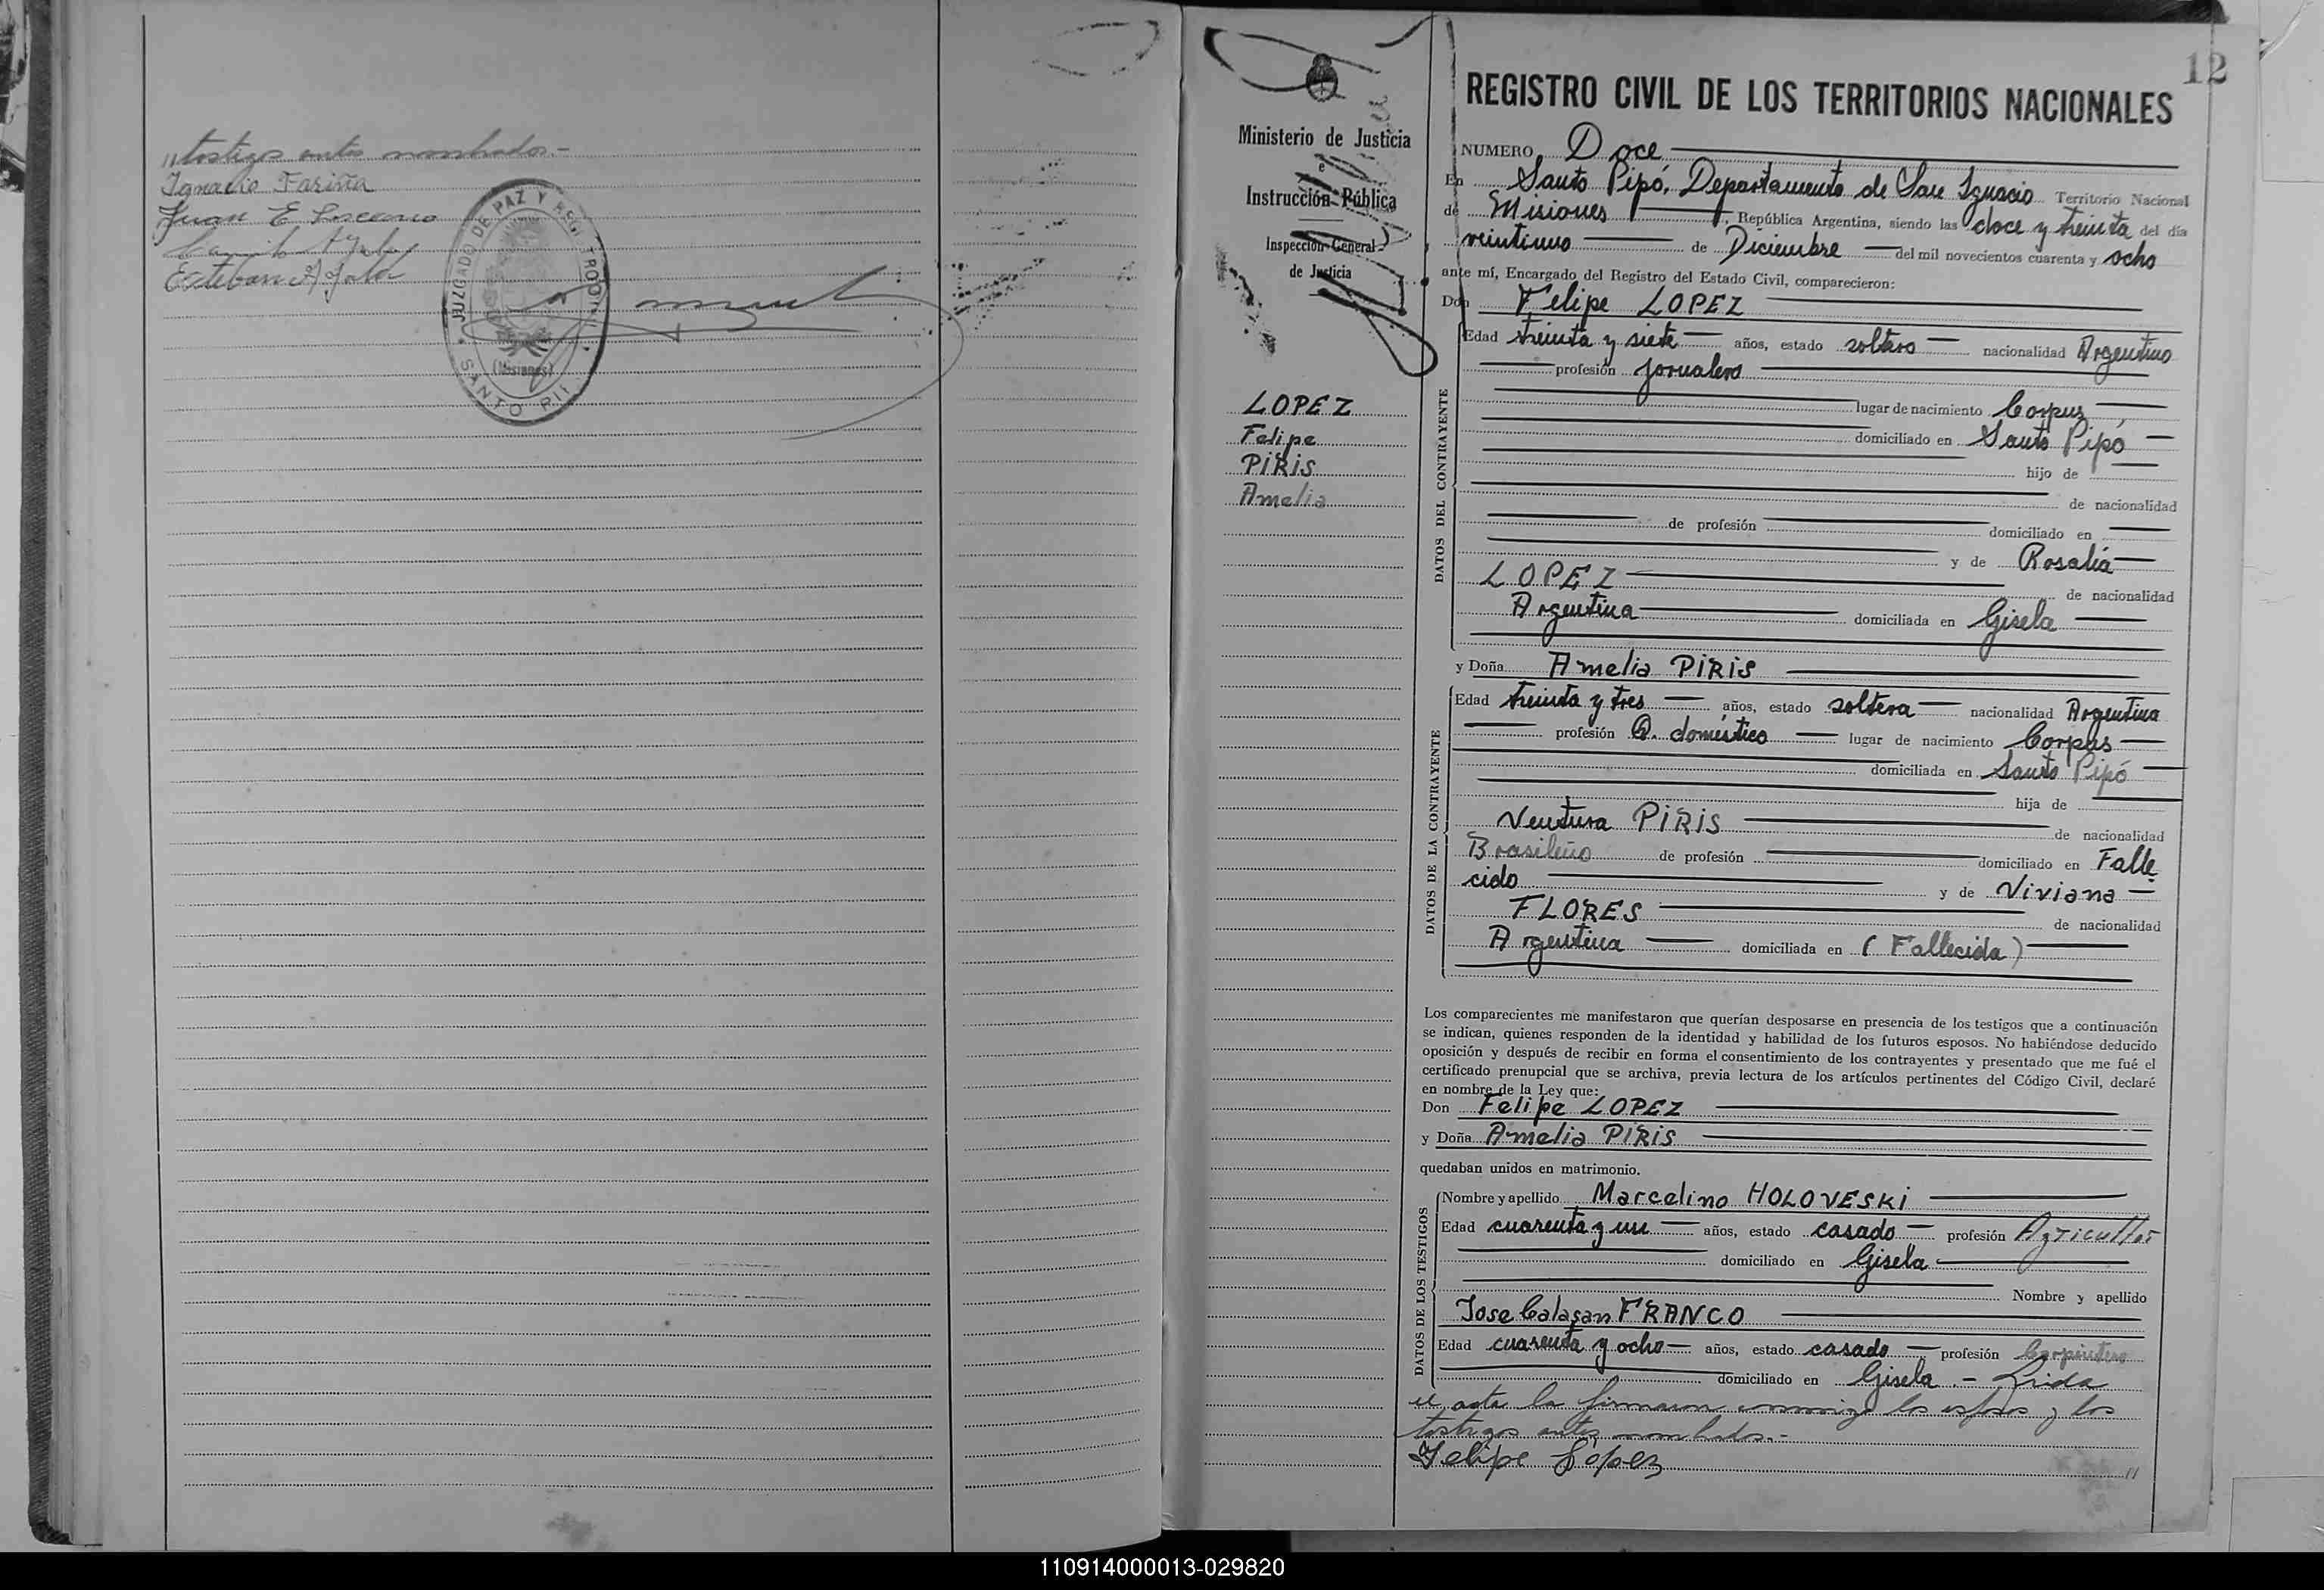 "testigos antes nombrados.-
Ignacio Fariña
Juan E
Esteban
JUZGADO DE PAZ Y REG
SANTO PI
(Misiones)
12
Ministerio de Justicia
e
Instrucción Pública
Inspección General
de Justicia
LOPEZ
Felipe
PIRIS
Amelia
REGISTRO CIVIL DE LOS TERRITORIOS NACIONALES
NUMERO Doce
En Santo Pipó, Departamento de San Ignacio Territorio Nacional
de Misiones, República Argentina, siendo las doce y treinta del día
veintiuno de Diciembre del mil novecientos cuarenta y ocho
ante mí, Encargado del Registro del Estado Civil, comparecieron:
Don Felipe LOPEZ
DATOS DEL CONTRAYENTE
Edad treinta y siete años, estado soltero nacionalidad Argentino
profesión jornalero
lugar de nacimiento Corpus
domiciliado en Santo Pipó
hijo de
de nacionalidad
de profesión domiciliado en
y de Rosalía
LOPEZ
de nacionalidad
Argentina domiciliada en Gisela
y Doña Amelia PIRIS
DATOS DE LA CONTRAYENTE
Edad treinta y tres años, estado soltera nacionalidad Argentina
profesión Q. doméstico lugar de nacimiento Corpus
domiciliada en Santo Pipó
hija de
Ventura PIRIS de nacionalidad
Brasileño de profesión domiciliado en Falle
cido y de Viviana
FLORES de nacionalidad
Argentina domiciliada en (Fallecida)
Los comparecientes me manifestaron que querían desposarse en presencia de los testigos que a continuación
se indican, quienes responden de la identidad y habilidad de los futuros esposos. No habiéndose deducido
oposición y después de recibir en forma el consentimiento de los contrayentes y presentado que me fué el
certificado prenupcial que se archiva, previa lectura de los artículos pertinentes del Código Civil, declaré
en nombre de la Ley que:
Don Felipe LOPEZ
y Doña Amelia PIRIS
quedaban unidos en matrimonio.
DATOS DE LOS TESTIGOS
Nombre y apellido Marcelino HOLOVESKI
Edad cuarenta y un años, estado casado profesión Agricultor
domiciliado en Gisela
Nombre y apellido
Jose Calasan FRANCO
Edad cuarenta y ocho años, estado casado profesión Carpintero
domiciliado en Gisela.- Leida
el acta la firmaron conmigo los esposos y los
testigos antes nombrados.-
Felipe López
"
110914000013-029820